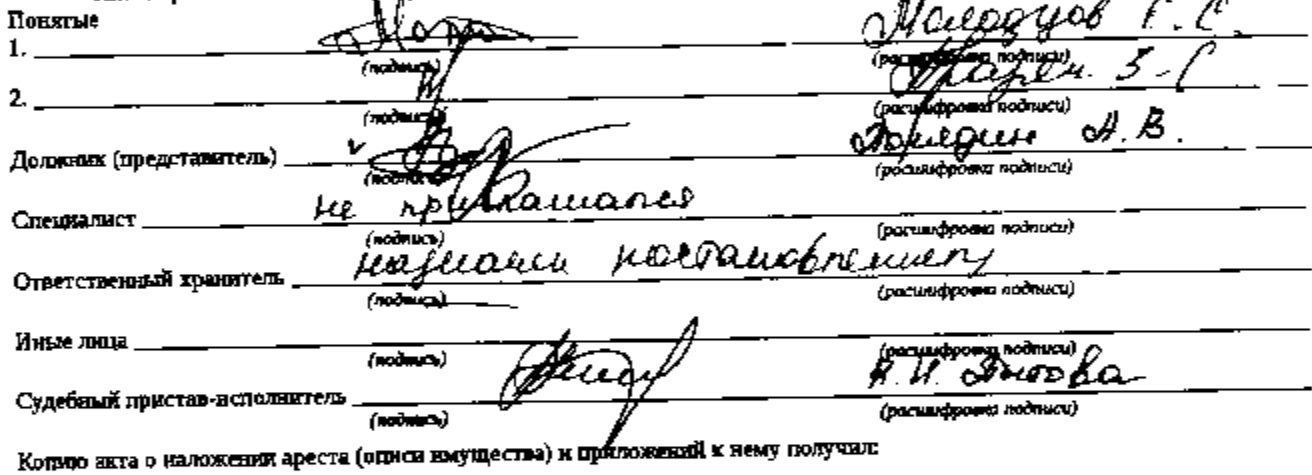 Понятые
1.
(подпись) (расшифровка подписи)
2.
(подпись) (расшифровка подписи)
Должник (представитель) А. В.
(подпись) (расшифровка подписи)
Специалист не приглашался
(подпись) (расшифровка подписи)
Ответственный хранитель назначен постановлением
(подпись) (расшифровка подписи)
Иные лица
(подпись) (расшифровка подписи)
Судебный пристав-исполнитель
(подпись) (расшифровка подписи)
Копию акта о наложении ареста (описи имущества) и приложений к нему получил: